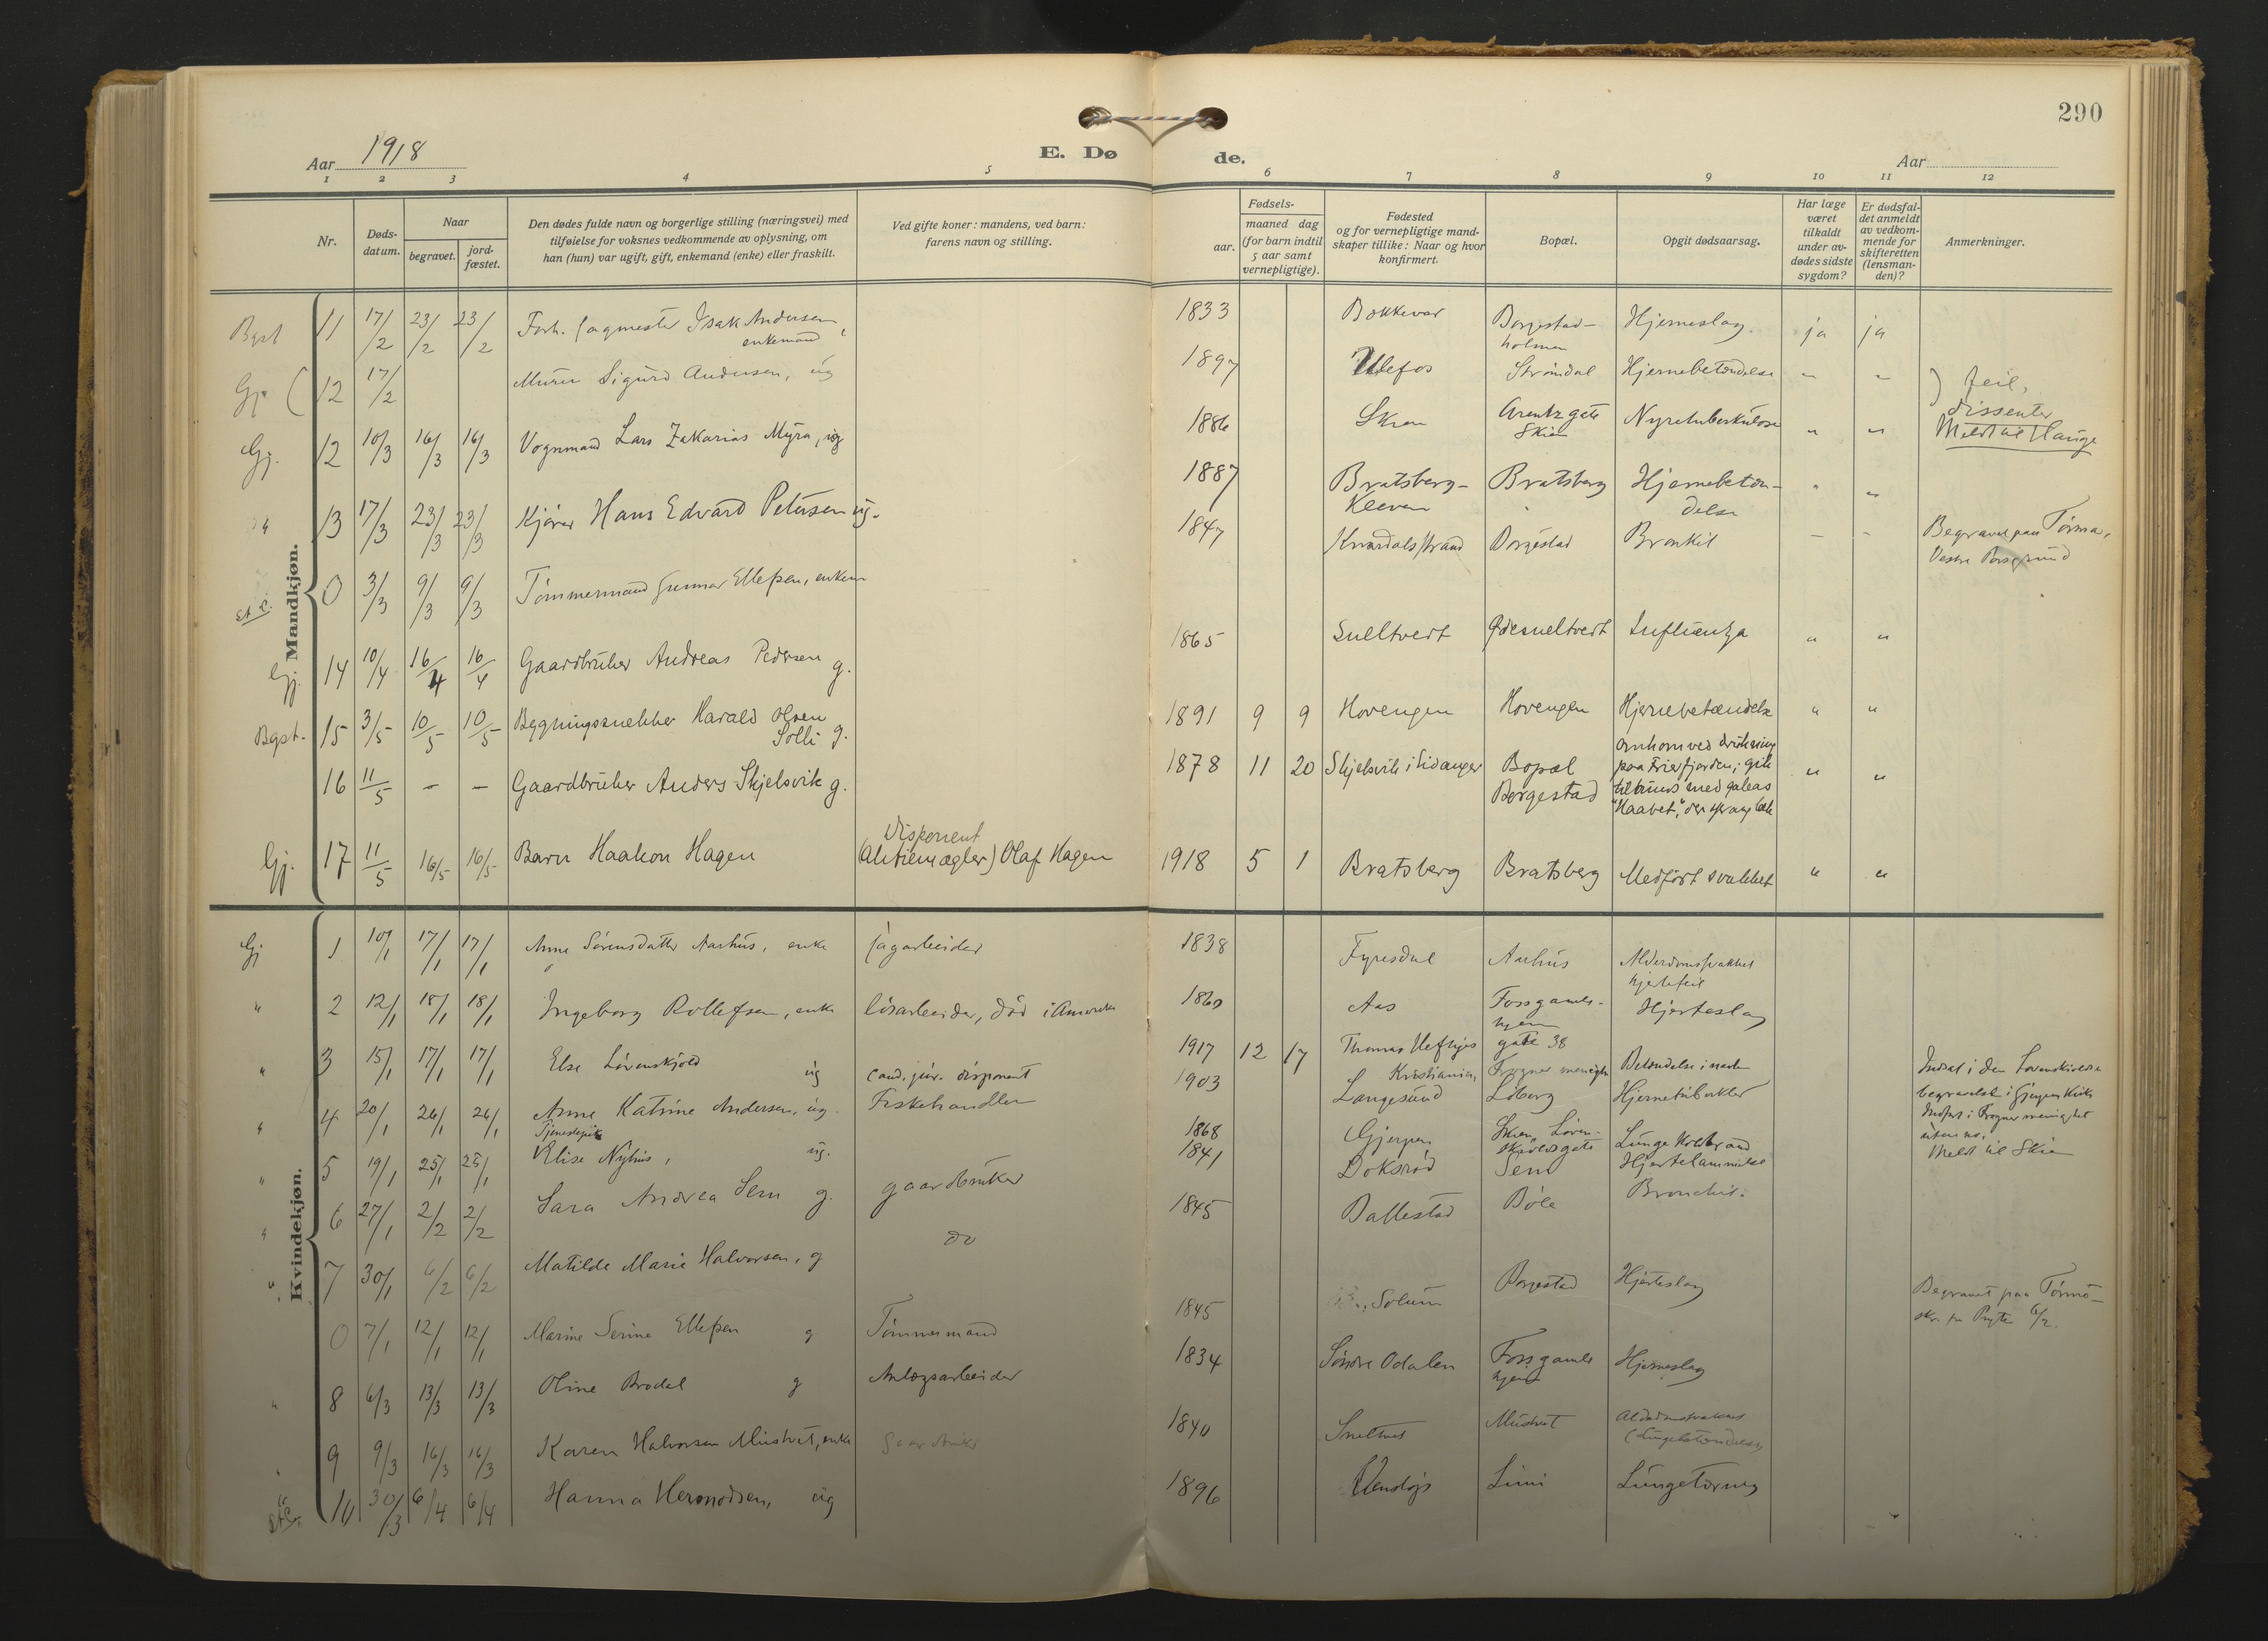 290
Aar 1918
E. Dø de.
Aar
1 2 3 4 5 6 7 8 9 10 11 12
Nr.
Døds-
datum.
Naar
begravet.
jord-
fæstet.
Den dødes fulde navn og borgerlige stilling (næringsvei) med
tilføielse for voksnes vedkommende av oplysning, om
han (hun) var ugift, gift, enkemand (enke) eller fraskilt.
Ved gifte koner: mandens, ved barn:
farens navn og stilling.
Fødsels-
aar.
maaned dag
(for barn indtil
5 aar samt
vernepligtige).
Fødested
og for vernepligtige mand-
skaper tillike: Naar og hvor
konfirmert.
Bopæl.
Opgit dødsaarsag.
Har læge
været
tilkaldt
under av-
dødes sidste
sygdom?
Er dødsfal-
det anmeldt
av vedkom-
mende for
skifteretten
(lensman-
den)?
Anmerkninger.
Mandkjøn.
Bgst 11 17/2 23/2 23/2 Forh. sagmester Isak Andersen, enkemand 1833 Bokkevar Borgestad-holmen Hjerneslag. ja ja
Gj. ( 12 17/2 Murer Sigurd Andersen, ug 1897 Ulefos Strømdal Hjernebetændelse " " ) feil, dissenter
Gj. 12 10/3 16/3 16/3 Vognmand Lars Zakarias Myra, ug 1886 Skien Arentz gate Skien Nyretuberkulose " " Meldt til Hauge
" 13 17/3 23/3 23/3 Kjører Hans Edvard Petersen ug. 1887 Bratsberg-Kleven Bratsberg Hjernebetæn-delse " "
0 3/3 9/3 9/3 Tømmermand Gunnar Ellefsen, enkem 1847 Knardalsstrand Borgestad Bronkit - - Begravet paa Tørmo, Vestre Porsgrund
Gj. 14 10/4 16/4 16/4 Gaardbruker Andreas Pedersen g. 1865 Sneltvedt Ødesneltvedt Influenza " "
Bgst. 15 3/5 10/5 10/5 Bygningssnekker Harald Olsen Solli g. 1891 9 9 Hovengen Hovengen Hjernebetændelse " "
16 11/5 - - Gaardbruker Anders Skjelsvik g. 1878 11 20 Skjelsvik i Eidanger Bopæl Borgestad Omkom ved drukning
paa Frierfjorden; gik
tilbunds med galeas
"Haabet", der sprang læk " "
Gj. 17 11/5 16/5 16/5 Barn Haakon Hagen Disponent (Aktiemægler) Olaf Hagen 1918 5 1 Bratsberg Bratsberg Medført svakhet " "
Kvindekjøn.
Gj 1 10/1 17/1 17/1 Anne Sørensdatter Aarhus, enke sagarbeider 1838 Fyresdal Aarhus Alderdomssvakhet hjertefeil
" 2 12/1 18/1 18/1 Ingeborg Rollefsen, enke løsarbeider, død i Amerika 1860 Aas Fossgamle-hjem Hjerteslag
" 3 15/1 17/1 17/1 Else Løvenskjold ug cand. jur. disponent 1917 12 17 Thomas Heftyes gate 38
Kristiania, Frogner menighet Betændelse i Indsat i den Løvenskioldske
begravelse i Gjerpen Kirke
Indført i Frogner menighet
uten no.
" 4 20/1 26/1 26/1 Anne Katrine Andersen, ug. Fiskehandler 1903 Langesund Liberg Hjernetuberkler
" 5 19/1 25/1 25/1 Tjenestepike Elise Nyhus, ug. 1868 Gjerpen Skien, Løven-skioldsgate Lunge Koldbrand Meldt til Skien
" 6 27/1 2/2 2/2 Sara Andrea Sem g. gaardbruker 1841 Doksrød Sem Hjertelammelse
" 7 30/1 6/2 6/2 Matilde Marie Halvorsen, g do 1845 Ballestad Bøle Bronchit.
0 7/1 12/1 12/1 Marine Serine Ellefsen g Tømmermand 1845 Solum Borgestad Hjerteslag Begravet paa Tørmo-
" 8 6/3 13/3 13/3 Oline Brodal g Anlægsarbeider 1834 Søndre Odalen Fossgamle hjem Hjerneslag
" 9 9/3 16/3 16/3 Karen Halvorsen Mustvet, enke Gaardbruker 1840 Sneltvet Mustvet Alderdomssvakhet (Lungebetændelse)
10 30/3 6/4 6/4 Hanna Hermodsen, ug 1896 Limi Lungetæring